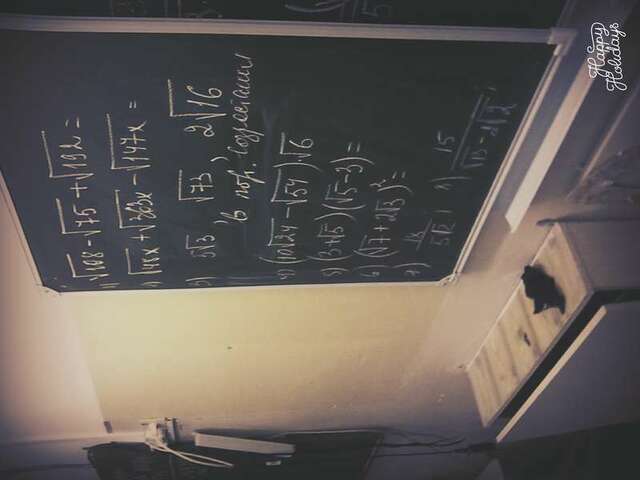 1) √108 - √75 + √192 =
2) √48x + √363x - √147x =
3) 5√3 , √73 , 2√16
в пор. возрастания
4) (10√24 - √54)·√6
5) (3+√5)(√5-3) =
6) (√7 + 2√3)² =
7) 13/5√2 ; 8) 15/√13-2√2
Happy
Holidays